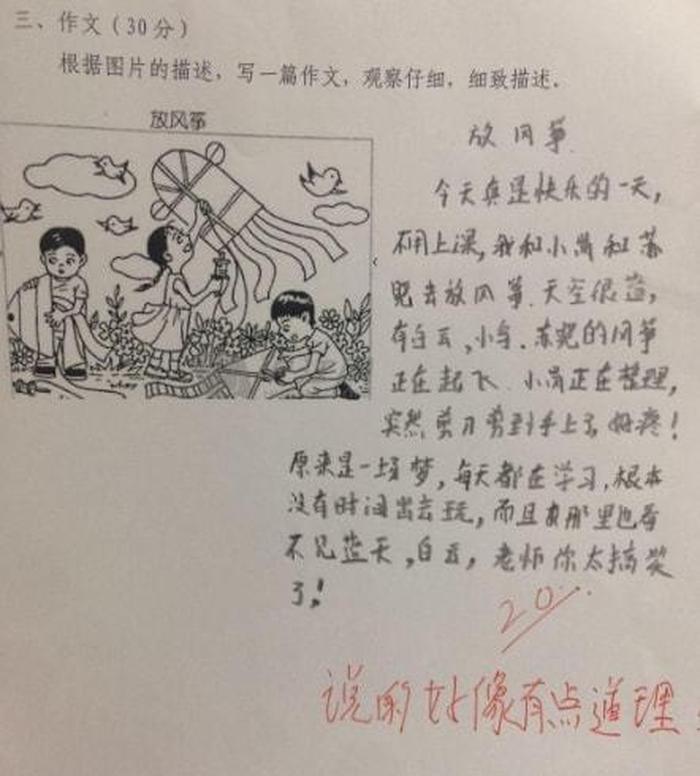 三、作文（30分）
根据图片的描述，写一篇作文，观察仔细，细致描述。
放风筝
放风筝
今天真是快乐的一天，
不用上课，我和小岗和苏
儿去放风筝．天空很蓝，
有白云，小鸟．苏儿的风筝
正在起飞．小岗正在整理，
突然剪刀剪到手上了，好疼！
原来是一场梦，每天都在学习，根本
没有时间出去玩，而且那里也看
不见蓝天，白云，老师你太搞笑
了！
20
说的好像有点道理